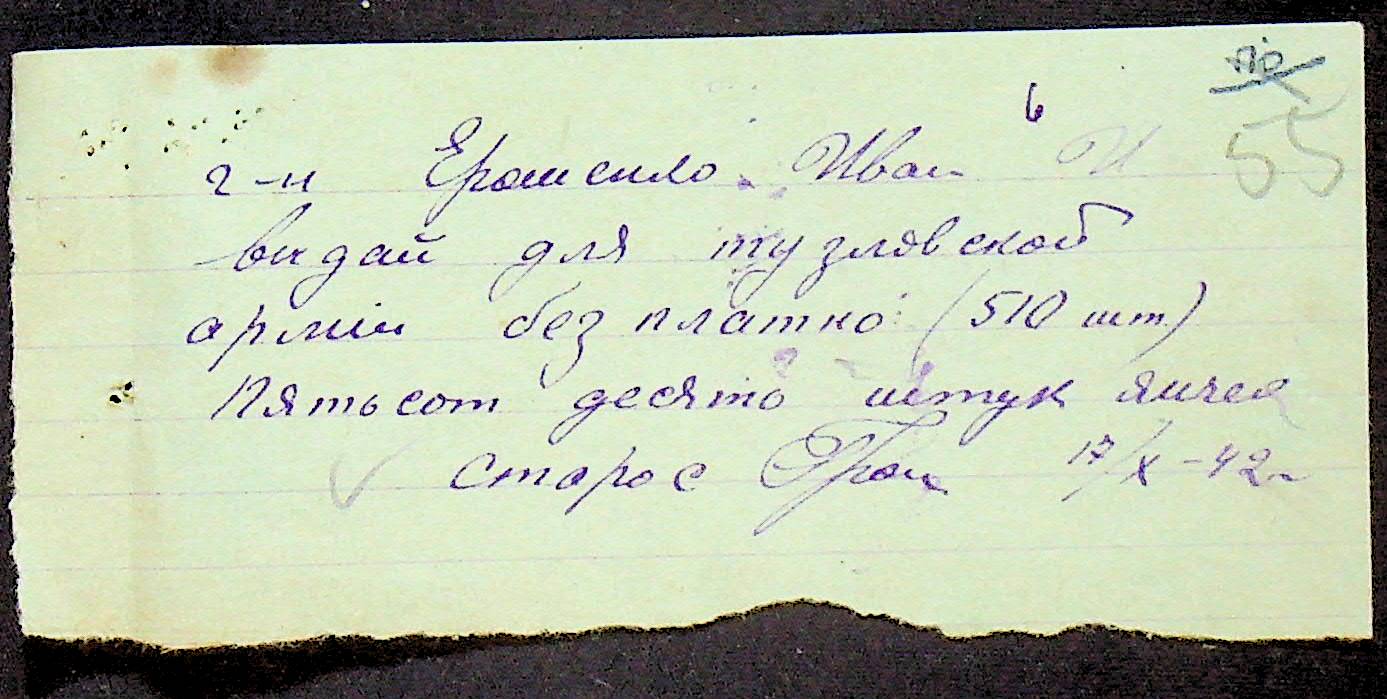 55
г-н Ерошенко Иван И
видай для тузловской
армии без платно (510 шт)
Пятьсот десято штук яичек
старос 17/X-42г